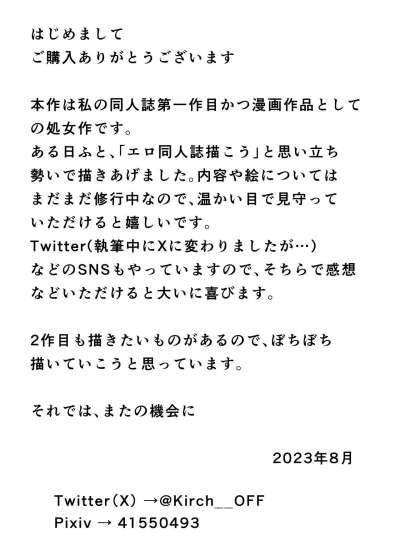 はじめまして
ご購入ありがとうございます
本作は私の同人誌第一作目かつ漫画作品として
の処女作です。
ある日ふと、「エロ同人誌描こう」と思い立ち
勢いで描きあげました。内容や絵については
まだまだ修行中なので、温かい目で見守って
いただけると嬉しいです。
Twitter(執筆中にXに変わりましたが…)
などのSNSもやっていますので、そちらで感想
などいただけると大いに喜びます。
2作目も描きたいものがあるので、ぼちぼち
描いていこうと思っています。
それでは、またの機会に
2023年8月
Twitter(X) →@Kirch__OFF
Pixiv → 41550493